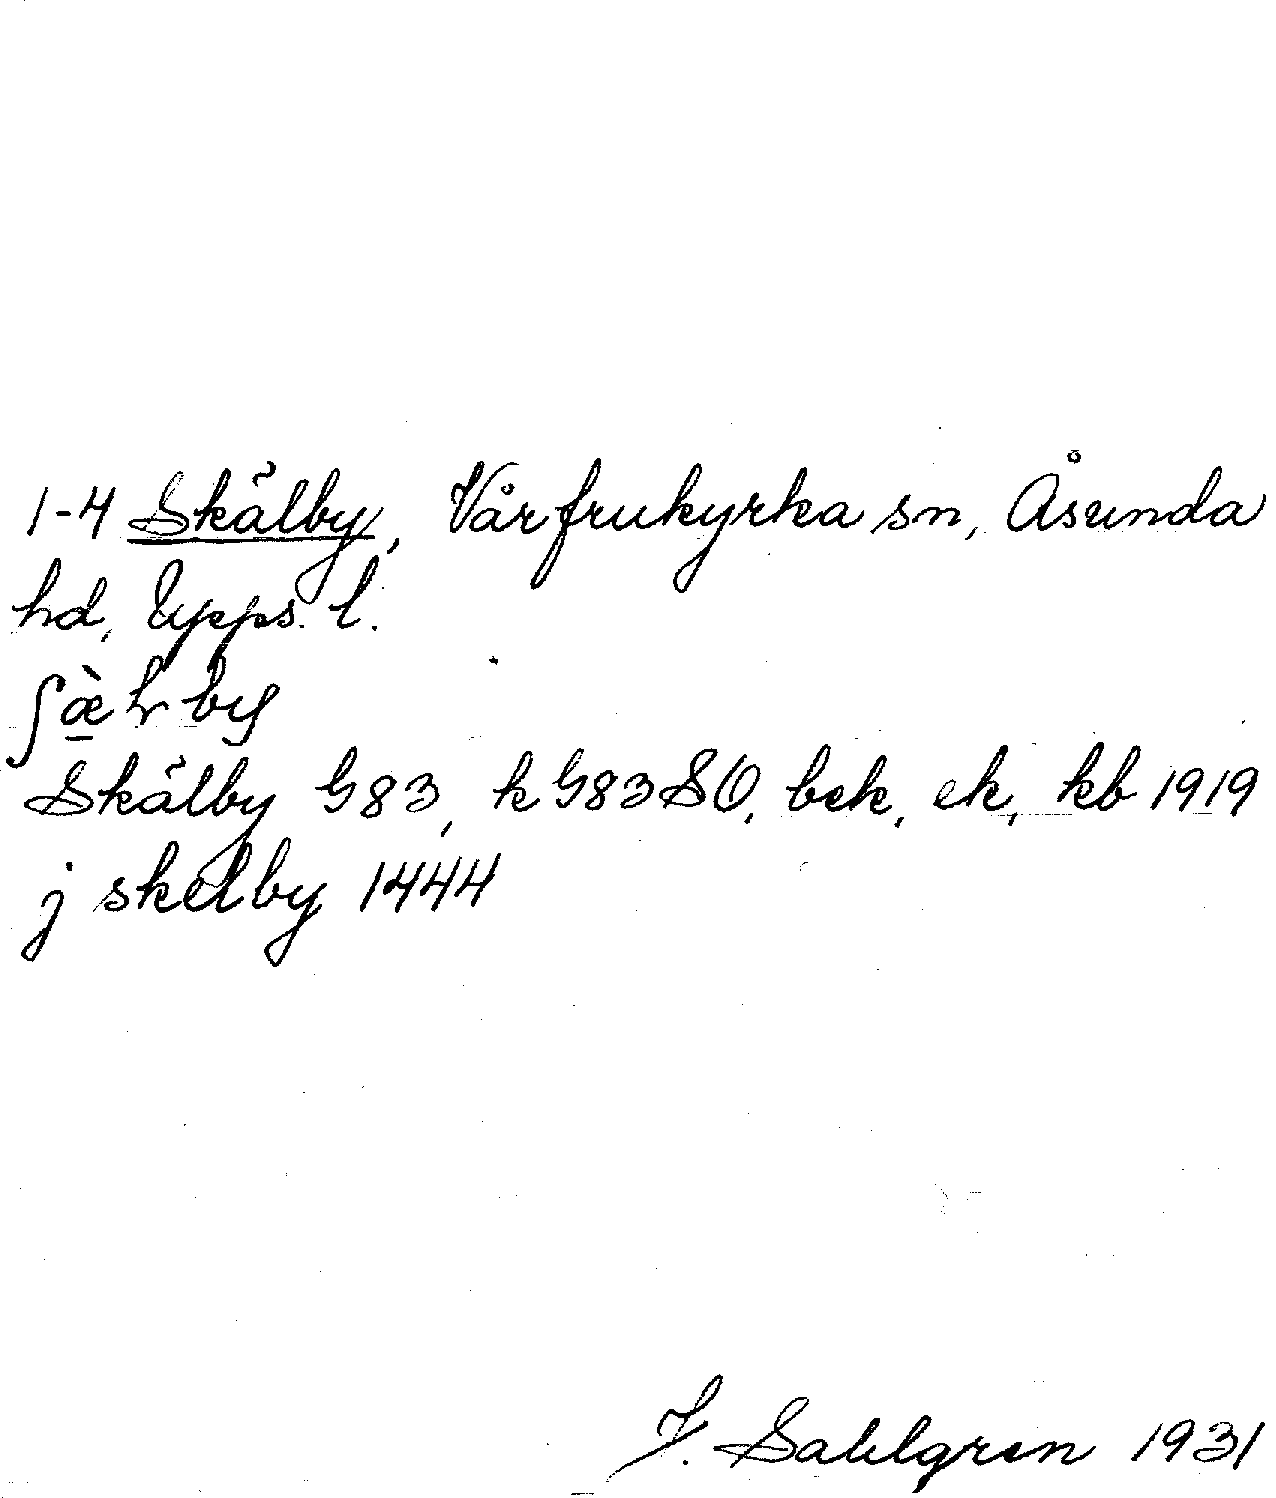 1-4 Skälby, Vårfrukyrka sn, Åsunda
hd, Upps. l.
ʃæ̀lby
Skälby G83, k G83 SO, bek, ek, kb 1919
j skelby 1444
J. Sahlgren 1931